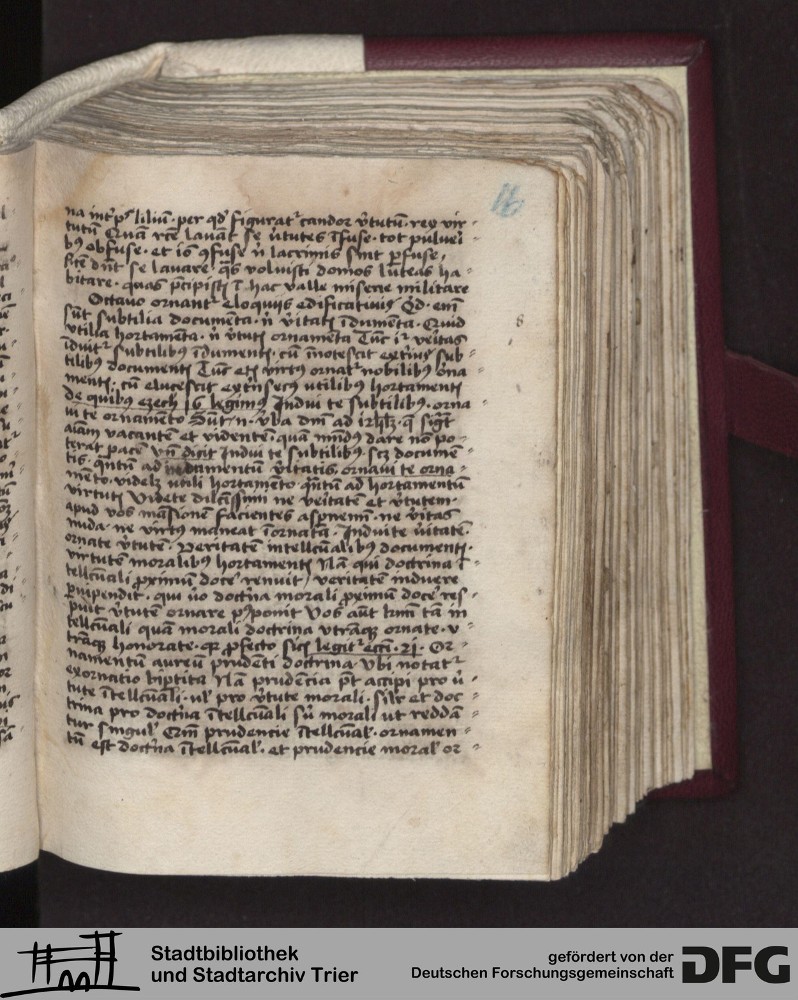 16
na int̾p̾s liliū · per qd̾ figurat᷑ candor v̾tutū · req vir⸗
tutū Quā rc̄e lauāt se v̾tutes īfuse · tot pulueri
bꝯ obfuse · et iō ꝯfuse n̄ lacrimis sint p̱fuse,
dn̄t se lauare q̄s voluisti domos luteas ha⸗
bitare · quas p̄cipisti ī hac valle miserie militare
Octauo ornant᷑ eloquijs edificatiuis Qd̾ · em̄
sūt subtilia documēta · n̄ v̾itatis īdumēta · Quid
vtilia hortamēta · n̄ v̾tutis ornamēta Tūc iḡ veritas
īduit᷑ subtilibꝯ īdumentis · cū īnotescit ext̾ius sub⸗
tilibꝯ documentis Tūc etiā virtus ornat᷑ nobilibꝯ orna
mentis · cū elucescit ext̾nsecꝯ utilibꝯ hortamentis
de quibꝯ ezech 16 legimꝯ Indui te subtilibꝯ · orna
ui te ornamēto Sūt · n · v̾ba dn̄i ad · q̄ sigt̾
aīam vacantē et videntē · quā mūdꝯ dare nō po⸗
terat pacē vn̄ dicit Indui te subtilibꝯ · scꝫ documē⸗
tis · q̄ntū ad indumentum v̾itatis · ornaui te orna⸗
mēto · videlꝫ utili hortamēto q̄ntū ad hortamentū
virtutis Videte dilcīssimi ne veritatē et v̾tutem ·
apud vos māsionē facientes asp̱nemī · ne v̾itas
nuda · ne virtꝯ maneat īornata · Induite v̾itatē ·
ornate v̾tutē · Veritatē intellcūalibꝯ documentis ·
virtutē moralibꝯ hortamentis Nā qui doctrina ī⸗
tellcūali ꝓximū docē renuit / veritatē induere
p̱uipendit · qui v̾o doctͥna morali ꝓximū docē res⸗
puit v̾tutē ornare p̾ponit Vos aūt km̄i tā in
tellcūali quā morali doctrina vtrāqꝫ ornate · v⸗
trāqꝫ honorate · qꝛ ꝓfecto sicꝫ legit᷑ eccī · 21 · Or⸗
namentū aureū prudenti doctrina · Vbi notat᷑
exornatio bip̱tita Nā prudēcia pt̄ accipi pro v̾⸗
tute ītellcūali · ul̾ pro v̾tute morali · silr̾ et doc⸗
trina pro doctͥna ītellcūali · morali ut reddā⸗
tur singul̾ Erm̄ prudencie ītellcūal̾ · ornamen⸗
tū est doctͥna ītellcūal̾ · et prudencie moral̾ or⸗
8
Stadtbibliothek
und Stadtarchiv Trier
gefördert von der
Deutschen Forschungsgemeinschaft
DFG